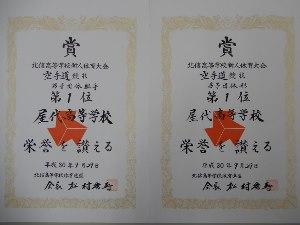 賞
北信高等学校新人体育大会
空手道競技
男子団体組手
第1位
屋代高等学校
栄誉を讃える
平成30年9月29日
北信高等学校体育連盟
会長 松村
賞
北信高等学校新人体育大会
空手道競技
男子団体形
第1位
屋代高等学校
栄誉を讃える
平成30年9月29日
北信高等学校体育連盟
会長 松村